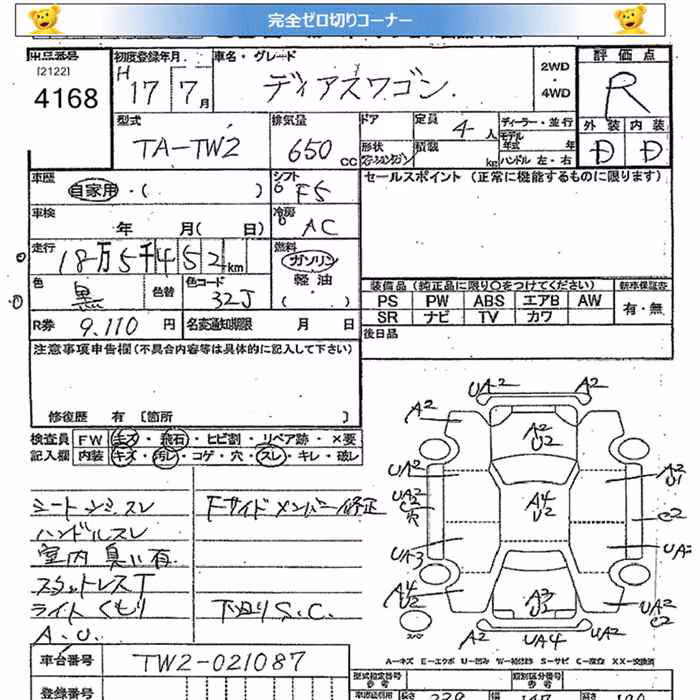 完全ゼロ切りコーナー
出品番号 初度登録年月 車名・グレード 2WD 評価点
[2122] H 17 7月 ディアスワゴン ・4WD R
4168
型式 排気量 ドア 定員 4-人 ディーラー・並行 外装 内装
TA-TW2 650 CC 形状 積載 kg モデル年式 年 D D
ハンドル 左・右
車歴 自家用・( ) シフト F5 セールスポイント (正常に機能するものに限ります)
車検 年 月( 日) 冷房 AC
走行 18万5千452km 燃料 ガソリン
軽油
色 黒 色替 色コード 32J ( ) 装備品(純正品に限り○をつけてください) 新車保証書
PS PW ABS エアB AW 有・無
SR ナビ TV カワ
R券 9.110 円 名変通知期限 月 日 後日品
注意事項申告欄(不具合内容等は具体的に記入して下さい)
修復歴 有 [箇所 ]
検査員 FW キズ・飛石・ヒビ割・リペア跡・×要
記入欄 内装 キズ・汚レ・コゲ・穴・スレ・キレ・破レ
シートシミスレ Fサイドメンバー修正
ハンドルスレ
室内臭い有
スタットレスT
ライトくもり 下廻りS.C.
A.U.
UA2 A2
A2 A2 U2
UA2 A2 U1
UA2 C2 穴 A4 U2 C2
UA3 UA2
A4 U2 A3 U2 UA2 C2
スペア A2 UA4 UA2
A-キズ E-エクボ U-凹み W-補修跡 S-サビ C-腐食 XX-交換済
車台番号 TW2-021087
登録番号 型式指定番号 類別区分番号
参考 参考